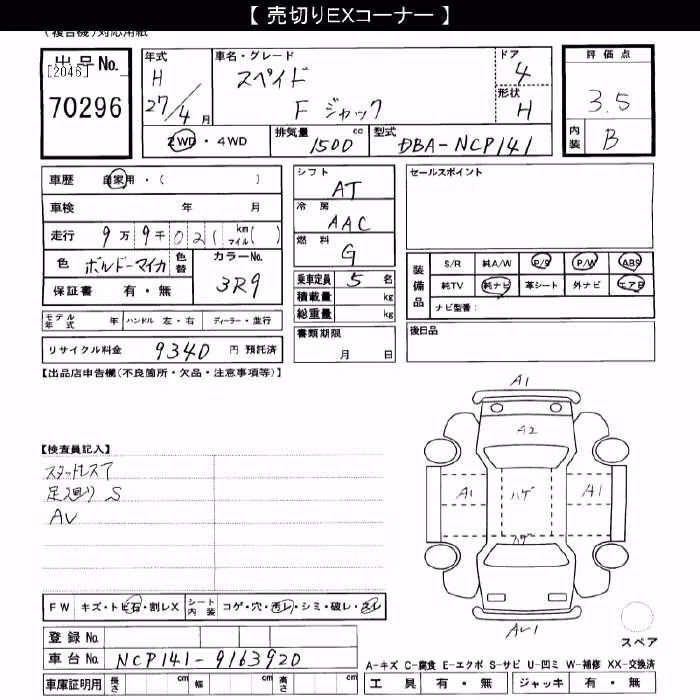 【 売切りEXコーナー 】
(複合機)対応用紙
出品No. [2046] 70296
年式 H 27/4月
車名・グレード スペイド F ジャック
ドア 4
形状 H
評価点 3.5
内装 B
2WD・4WD 排気量 1500 cc 型式 DBA-NCP141
車歴 自家用・( )
車検 年 月
走行 9万9千02( km マイル( )
色 ボルドーマイカ 色替 カラーNo. 3R9
保証書 有・無
モデル年式 年 ハンドル 左・右 ディーラー・並行
リサイクル料金 9340 円 預託済
シフト AT
冷房 AAC
燃料 G
乗車定員 5 名
積載量 kg
総重量 kg
書類期限 月 日
セールスポイント
装備品 S/R 純A/W P/S P/W ABS
純TV 純ナビ 革シート 外ナビ エアB
ナビ型番:
後日品
【出品店申告欄(不良箇所・欠品・注意事項等)】
【検査員記入】
スタッドレスT
足廻り S
AV
A1
A2
A1 ハゲ A1
ハゲ
AU1
スペア
FW キズ・トビ石・割レX シート内装 コゲ・穴・汚レ・シミ・破レ・スレ
登録No.
車台No. NCP141-9163920
車庫証明用 長さ cm 幅 cm 高さ cm
A-キズ C-腐食 E-エクボ S-サビ U-凹ミ W-補修 XX-交換済
工具 有・無 ジャッキ 有・無